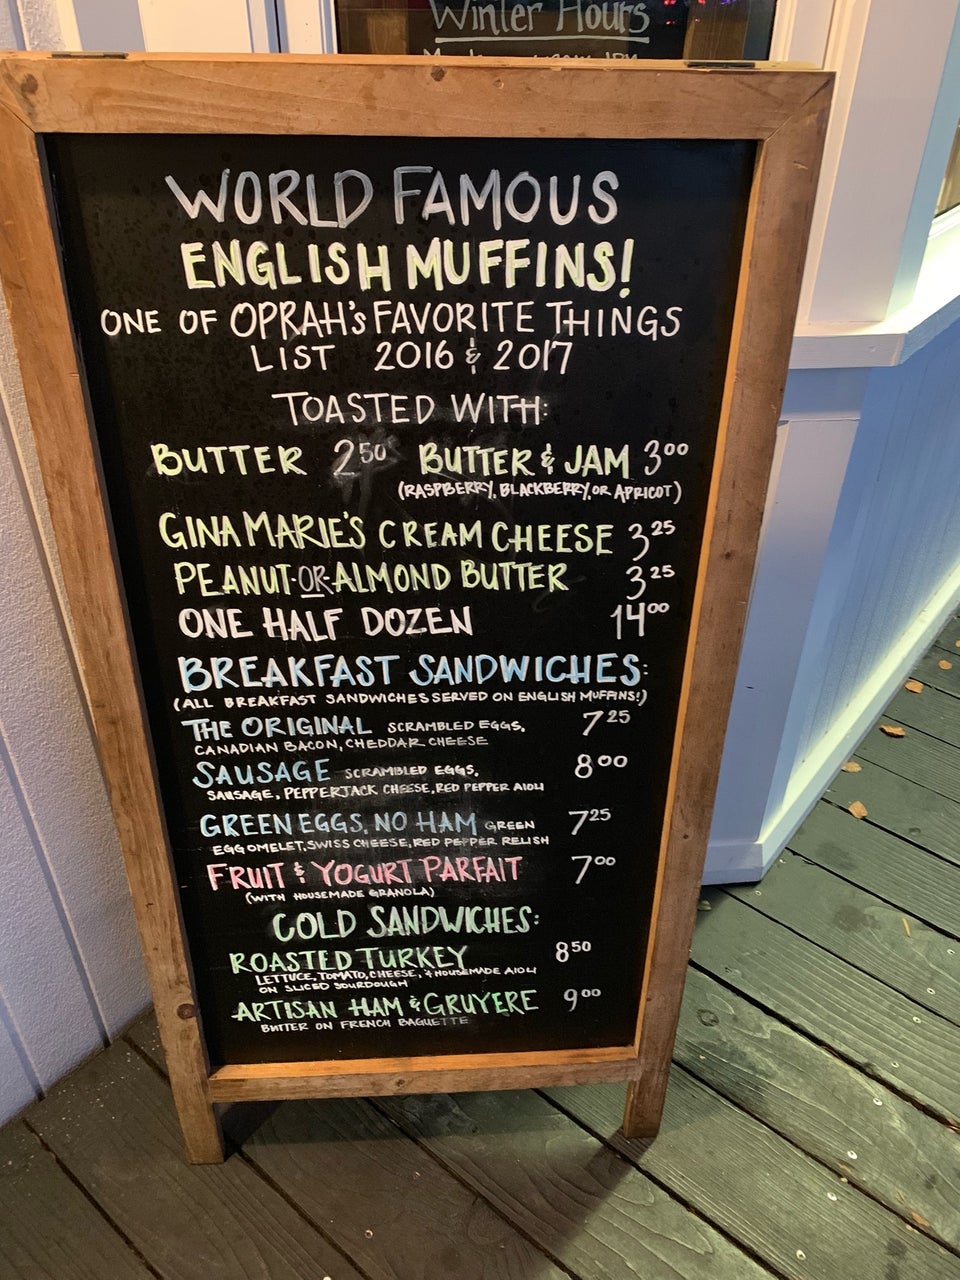 Winter Hours
WORLD FAMOUS
ENGLISH MUFFINS!
ONE OF OPRAH'S FAVORITE THINGS
LIST 2016 & 2017
TOASTED WITH:
BUTTER 2.50 BUTTER & JAM 3.00
(RASPBERRY, BLACKBERRY, OR APRICOT)
GINA MARIE'S CREAM CHEESE 3.25
PEANUT-OR-ALMOND BUTTER 3.25
ONE HALF DOZEN 14.00
BREAKFAST SANDWICHES:
(ALL BREAKFAST SANDWICHES SERVED ON ENGLISH MUFFINS!)
THE ORIGINAL SCRAMBLED EGGS, 7.25
CANADIAN BACON, CHEDDAR CHEESE
SAUSAGE SCRAMBLED EGGS, 8.00
SAUSAGE, PEPPERJACK CHEESE, RED PEPPER AIOLI
GREEN EGGS, NO HAM GREEN 7.25
EGG OMELET, SWISS CHEESE, RED PEPPER RELISH
FRUIT & YOGURT PARFAIT 7.00
(WITH HOUSEMADE GRANOLA)
COLD SANDWICHES:
ROASTED TURKEY 8.50
LETTUCE, TOMATO, CHEESE, & HOUSEMADE AIOLI
ON SLICED SOURDOUGH
ARTISAN HAM & GRUYERE 9.00
BUTTER ON FRENCH BAGUETTE